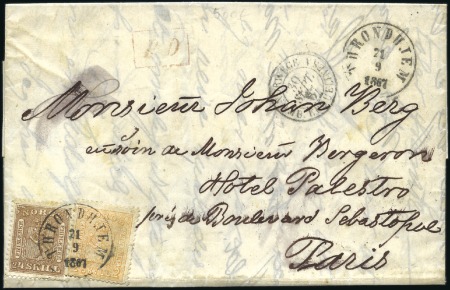 P.D.
THRONDHJEM
21
9
1867
Monsieur Johan Berg
au soin de Monsieur Bergeron
Hotel Palestro
près de Boulevard Sebastopol
Paris
THRONDHJEM
21
9
1867
24 SKILL